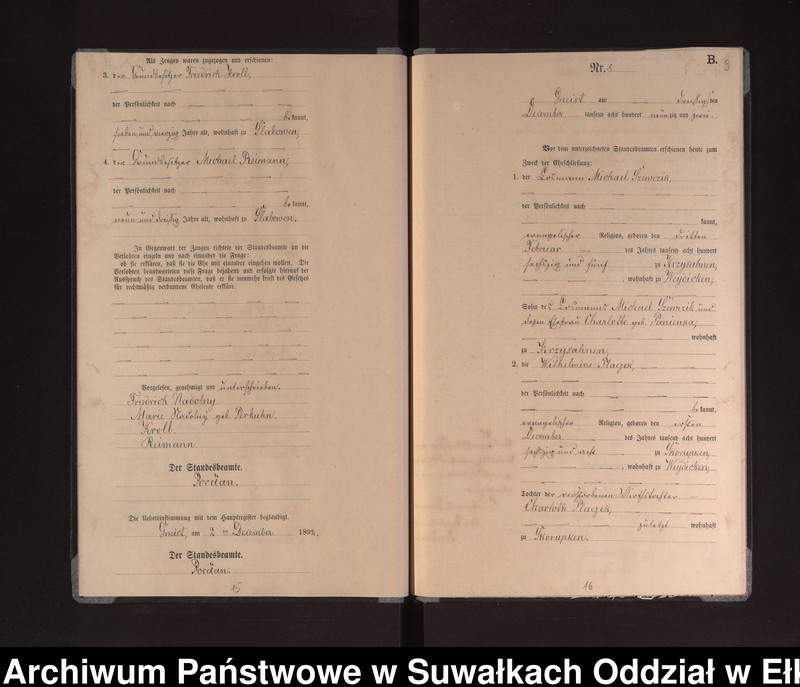 Als Zeugen waren zugezogen und erschienen:
3. der Grundbesitzer Friedrich Kroll,
der Persönlichkeit nach
be kannt,
sieben und vierzig Jahre alt, wohnhaft zu Glabowen,
4. der Grundbesitzer Michael Reimann,
der Persönlichkeit nach
be kannt,
neun und dreißig Jahre alt, wohnhaft zu Glabowen.
In Gegenwart der Zeugen richtete der Standesbeamte an die
Verlobten einzeln und nach einander die Frage:
ob sie erklären, daß sie die Ehe mit einander eingehen wollen. Die
Verlobten beantworteten diese Frage bejahend und erfolgte hierauf der
Ausspruch des Standesbeamten, daß er sie nunmehr kraft des Gesetzes
für rechtmäßig verbundene Eheleute erkläre.
Vorgelesen, genehmigt und unterschrieben.
Friedrich Nadolny
Marie Nadolny geb. Perkuhn
Kroll
Reimann
Der Standesbeamte.
Pordan.
Die Uebereinstimmung mit dem Hauptregister beglaubigt.
Gneist, am 2 ten December 1892.
Der Standesbeamte.
Pordan.
15
B.
Nr. 8
9
Gneist am dreißigsten
December tausend acht hundert neunzig und zwei.
Vor dem unterzeichneten Standesbeamten erschienen heute zum
Zweck der Eheschließung:
1. der Losmann Michael Szewzik,
der Persönlichkeit nach
kannt,
evangelischer Religion, geboren den dritten
Februar des Jahres tausend acht hundert
sechszig und fünf zu Krzysahnen,
, wohnhaft zu Weydicken,
Sohn des Losmanns Michael Szewzik und
dessen Ehefrau Charlotte geb. Panienka,
wohnhaft
zu Krzysahnen,
2. die Wilhelmine Placzek,
der Persönlichkeit nach
be kannt,
evangelischer Religion, geboren den ersten
December des Jahres tausend acht hundert
sechszig und acht zu Skorupken,
, wohnhaft zu Weydicken,
Tochter der verstorbenen Wirthstochter
Charlotte Placzek,
zuletzt wohnhaft
zu Skorupken.
16
Archiwum Państwowe w Suwałkach Oddział w Ełk